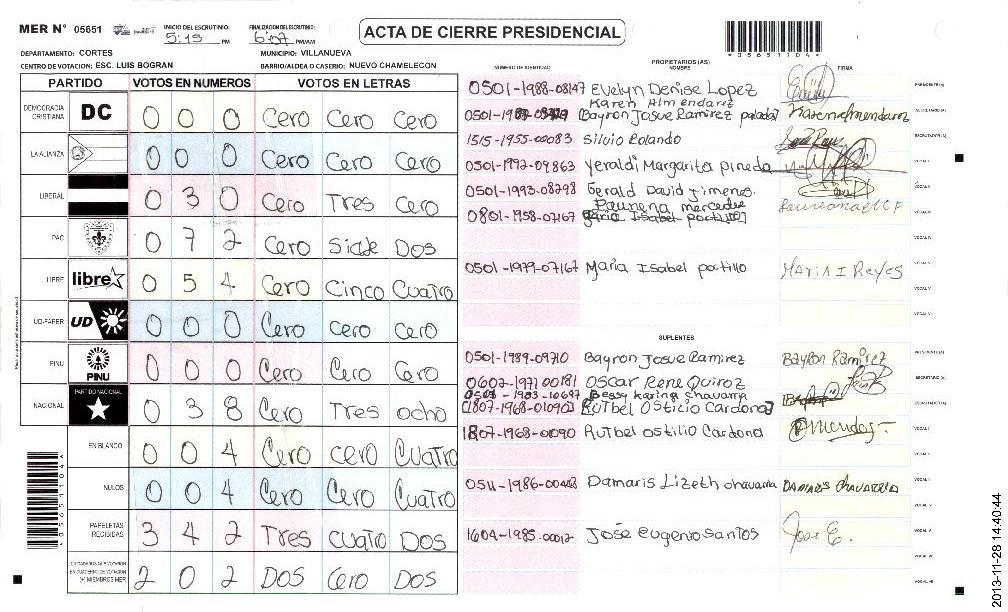 MER N° 05651 INICIO DEL ESCRUTINIO: 5:19 PM FINALIZACION DEL ESCRUTINIO: 6:07 PM/AM
ACTA DE CIERRE PRESIDENCIAL
*05651104*
DEPARTAMENTO: CORTES MUNICIPIO: VILLANUEVA
CENTRO DE VOTACION: ESC. LUIS BOGRAN BARRIO/ALDEA O CASERIO: NUEVO CHAMELECON
PARTIDO VOTOS EN NUMEROS VOTOS EN LETRAS
DEMOCRACIA CRISTIANA DC 0 0 0 Cero Cero Cero
LA ALIANZA 0 0 0 Cero Cero Cero
LIBERAL 0 3 0 Cero Tres Cero
PAC 0 7 2 Cero Siete Dos
LIBRE libre 0 5 4 Cero Cinco Cuatro
UD-FAPER UD 0 0 0 Cero cero Cero
PINU PINU 0 0 0 Cero Cero Cero
NACIONAL PARTIDO NACIONAL 0 3 8 Cero Tres ocho
EN BLANCO 0 0 4 Cero cero Cuatro
NULOS 0 0 4 Cero Cero Cuatro
PAPELETAS RECIBIDAS 3 4 2 Tres cuatro Dos
CIUDADANOS QUE VOTARON EN CUADERNO DE VOTACION (+) MIEMBROS MER 2 0 2 DOS Cero DOS
PROPIETARIOS (AS)
NUMERO DE IDENTIDAD NOMBRE FIRMA
0501-1988-08147 Evelyn Denise Lopez PRESIDENTE(A)
Karen Almendarez
0501-19 Bayron Josue Ramirez Karen Almendarez SECRETARIO(A)
1515-1955-00083 Silvio Rolando ESCRUTADOR(A)
0501-1992-09863 Yeraldi Margarita pineda VOCAL I
0501-1993-08298 Gerald David Jimenes VOCAL II
mercedes
0801-1958-07167 Maria Isabel portillo VOCAL III
VOCAL IV
0501-1979-07167 Maria Isabel portillo Maria I Reyes VOCAL V
VOCAL VI
SUPLENTES
0501-1989-09710 Bayron Josue Ramirez Bayron Ramirez PRESIDENTE(A)
0602-1971 00181 Oscar Rene Quiroz SECRETARIO(A)
0501-1983-10697 Bessy Karina chavarria
(1807-1968-01090) Rutbel Osticio Cardona ESCRUTADOR(A)
1807-1968-01090 Rutbel ostilio Cardona VOCAL I
VOCAL II
0511-1986-00408 Damaris Lizeth chavarria Damaris Chavarria
1604-1985-00012 José Eugenio Santos Jose E. VOCAL V
*05651104*
2013-11-28 14:40:44